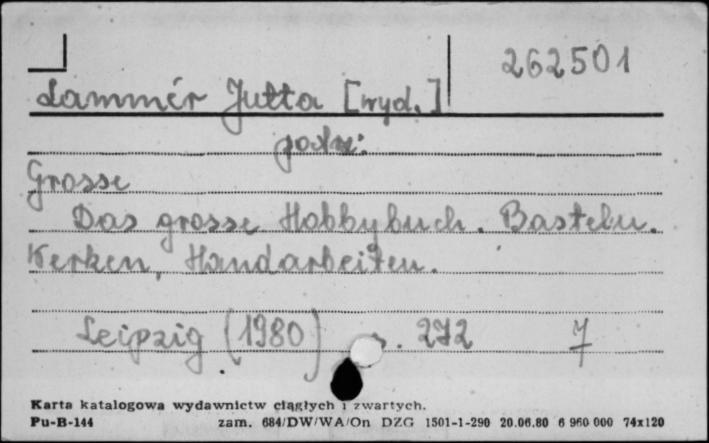 262501
Lammér Jutta [wyd.]
patrz:
Grosse
Das grosse Hobbybuch. Basteln.
Werken, Handarbeiten.
Leipzig (1980) s. 272 7
Karta katalogowa wydawnictw ciągłych i zwartych.
Pu-B-144 zam. 684/DW/WA/On DZG 1501-1-290 20.06.80 6 960 000 74x120